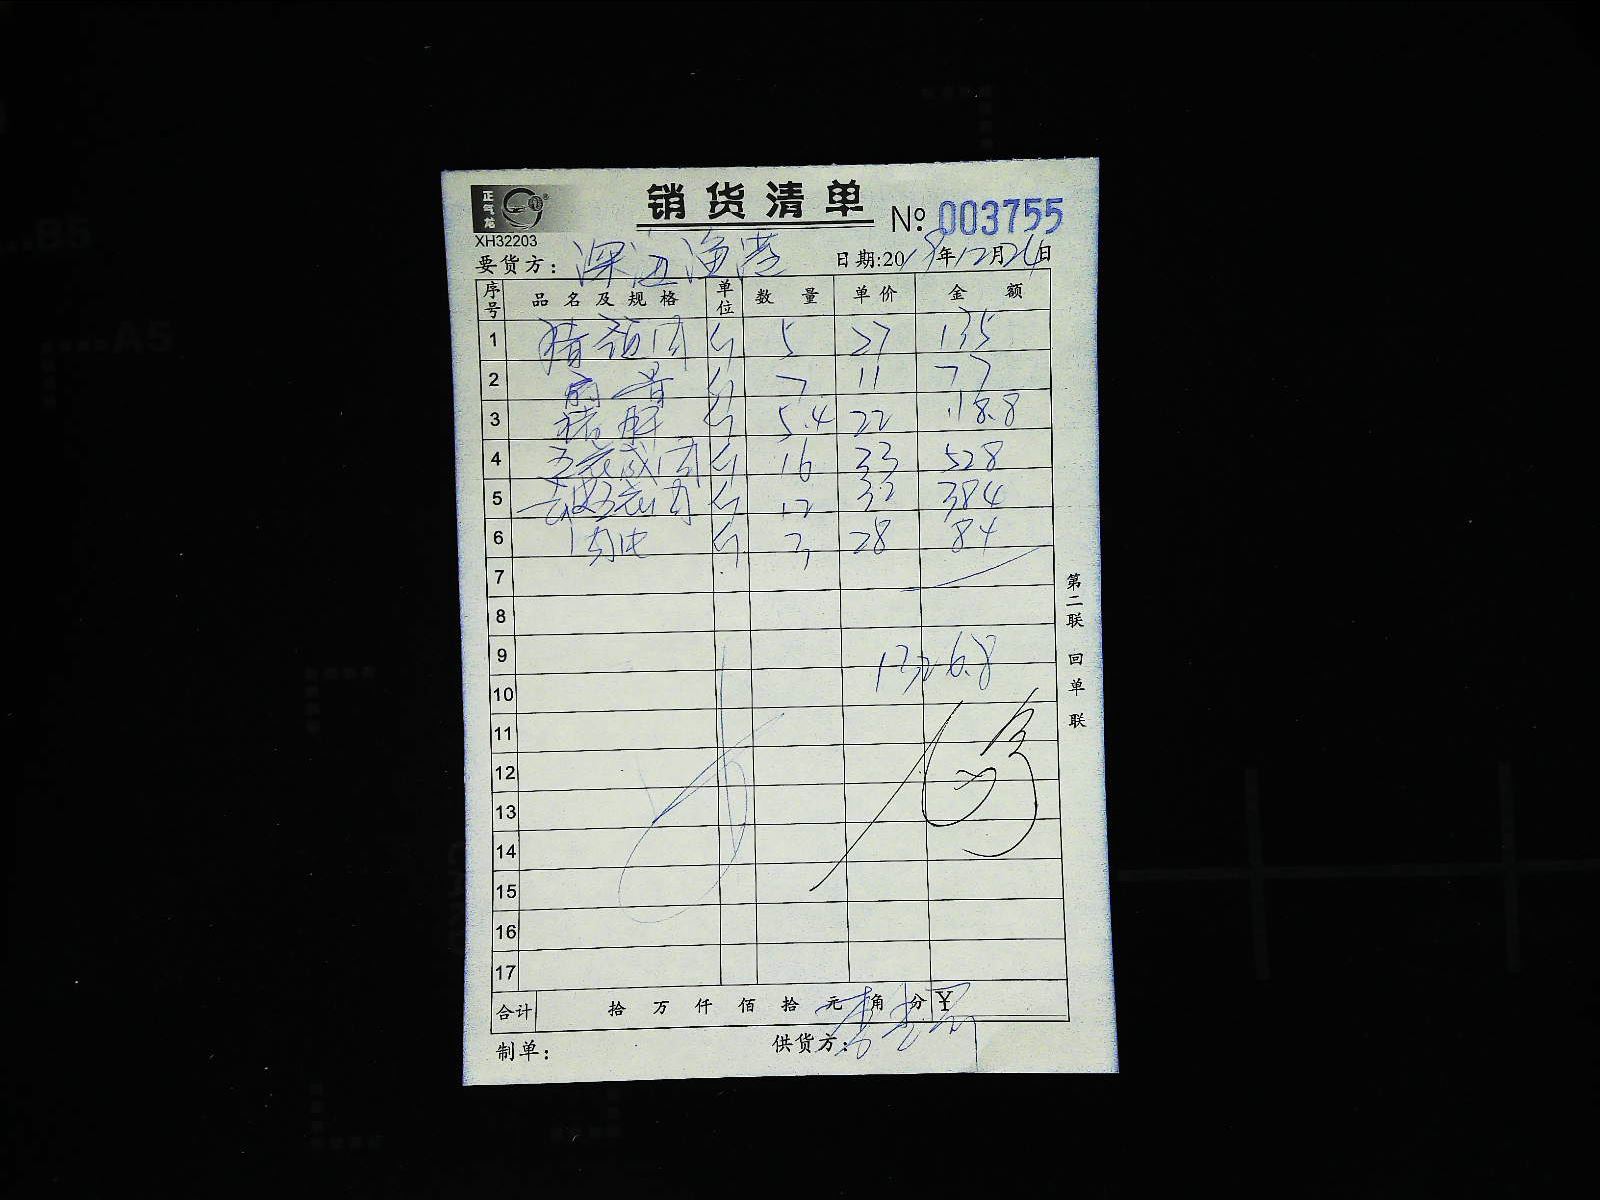 正气龙
销货清单
№ 003755
XH32203
要货方: 深江渔港 日期:2018年12月26日
序号 品名及规格 单位 数量 单价 金额
1 猪颈肉 斤 5 27 135
2 扇骨 斤 7 11 77
3 猪 斤 5.4 22 118.8
4 五花咸肉 斤 16 33 528
5 五花肉 斤 12 32 384
6 斤 3 28 84
7
8
9
1326.8
10
11
12
13
14
15
16
17
合计 拾 万 仟 佰 拾 元 角 分 ¥
制单: 供货方:
第二联 回单联